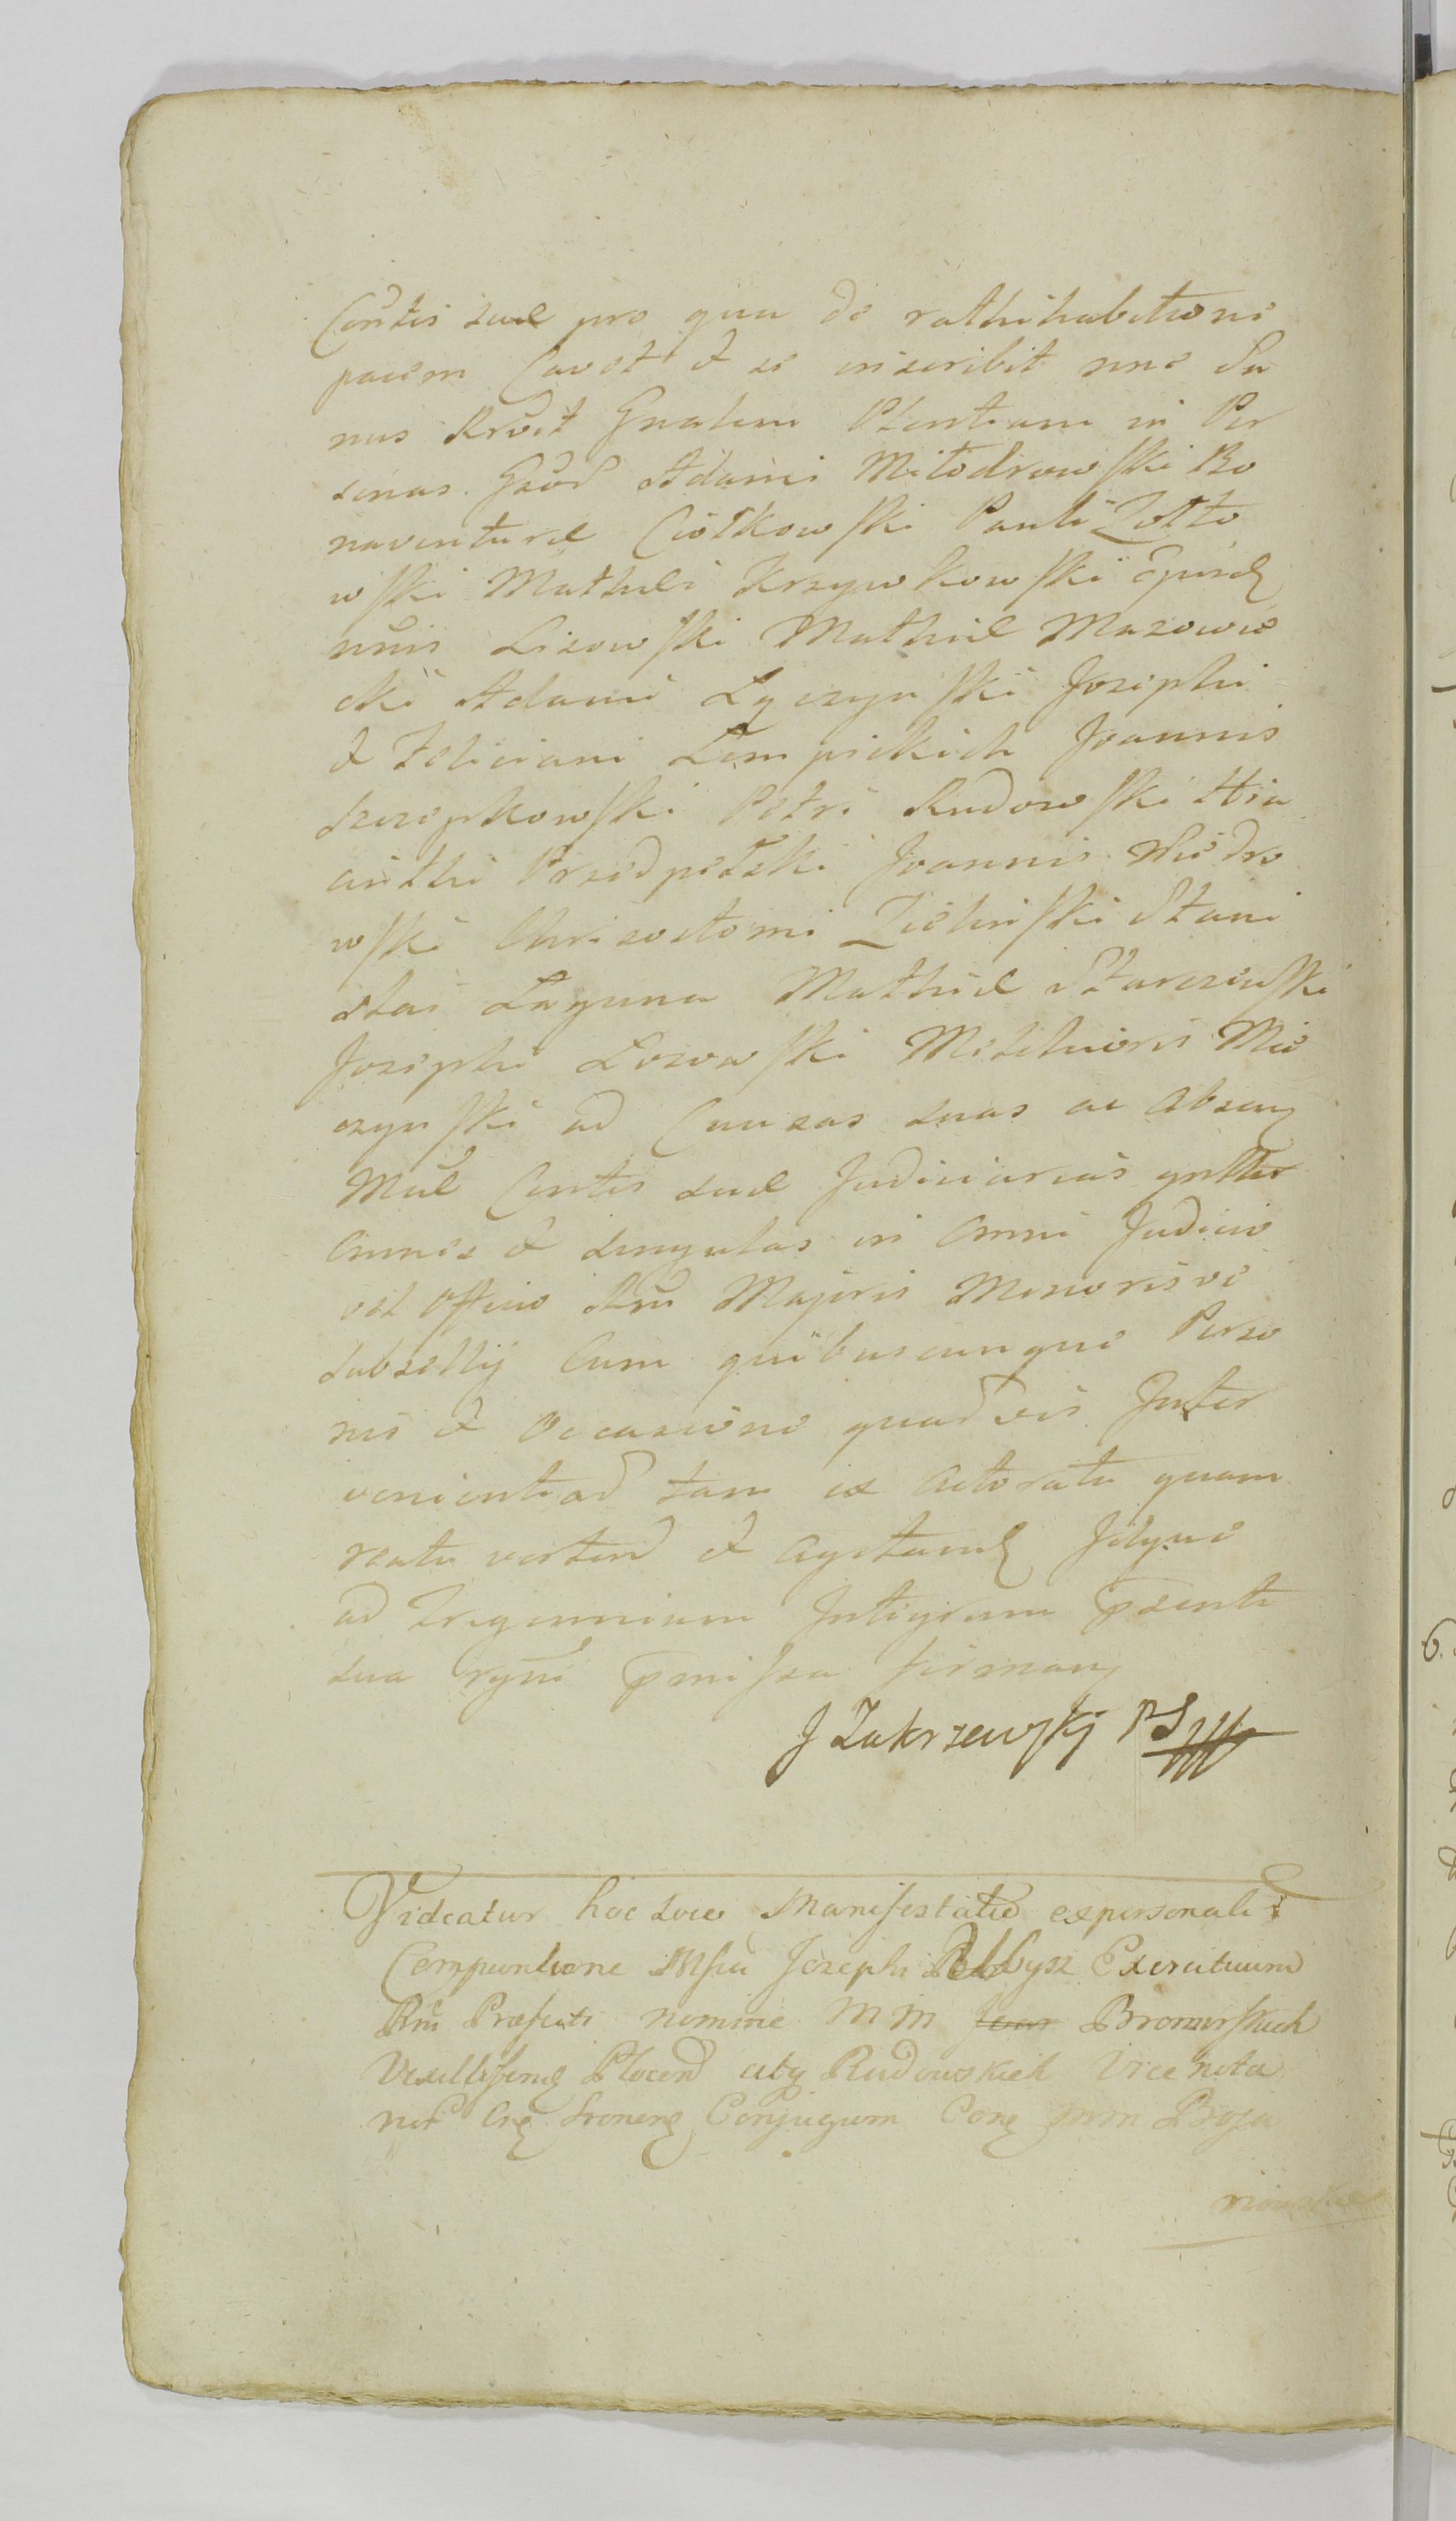 Contis suæ pro qua de rathihabitione
pacem Cavet et se inscribit nnc Su
nus Rrvit Gnalem Plentiam in Per
sonas. Gsod Adami Miłodrowski Bo
naventuræ Ciołkowski Pauli Zołto
wski Mathei Krzywkowski
Lisowski Mathiæ Mazowie
cki Adami Łączynski Josephi
et Feliciani Lempickich Joannis
Szczepkowski Petri Rudowski Hia
cinthi Przedpełski Joannis
wski Chrisostomi Zielinski Stani
slai Laguna Mathiæ Starczewski
Josephi Losowski Melchioris Mie
czynski ad Causas suas ac
Contis suæ Judiciarias gnltter
Omnes et singulas in Omni Judicio
vel Officio Rni Majoris Minorisve
Subsellij Cum quibuscunque Perso
nis et Occasione quadvis Inter
venientiad tam ex Actoratu quam
reatu vertend et agitand Idque
ad Tregennium Integrum psenti
sua rgni pmissa firman
J Zakrzewskj PS
Videatur hoc Loco Manifestatio expersonali
Compuntione Josephi Exercituum
Rni Præfecti nomine M M Joan Bromirskich
Vexilliferid Plocend atq Rudowskich Vice nota
rior Conjugum Cong mm Boja
nowskie